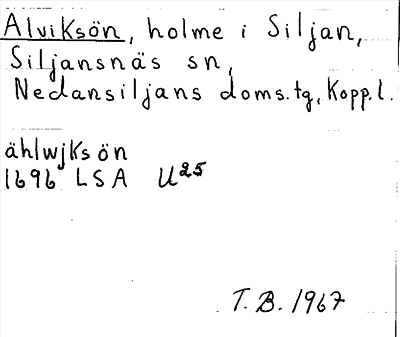 Alviksön, holme i Siljan,
Siljansnäs sn,
Nedansiljans doms.tg, Kopp.l.
ählwjksön
1696 LSA U25
T.B. 1967